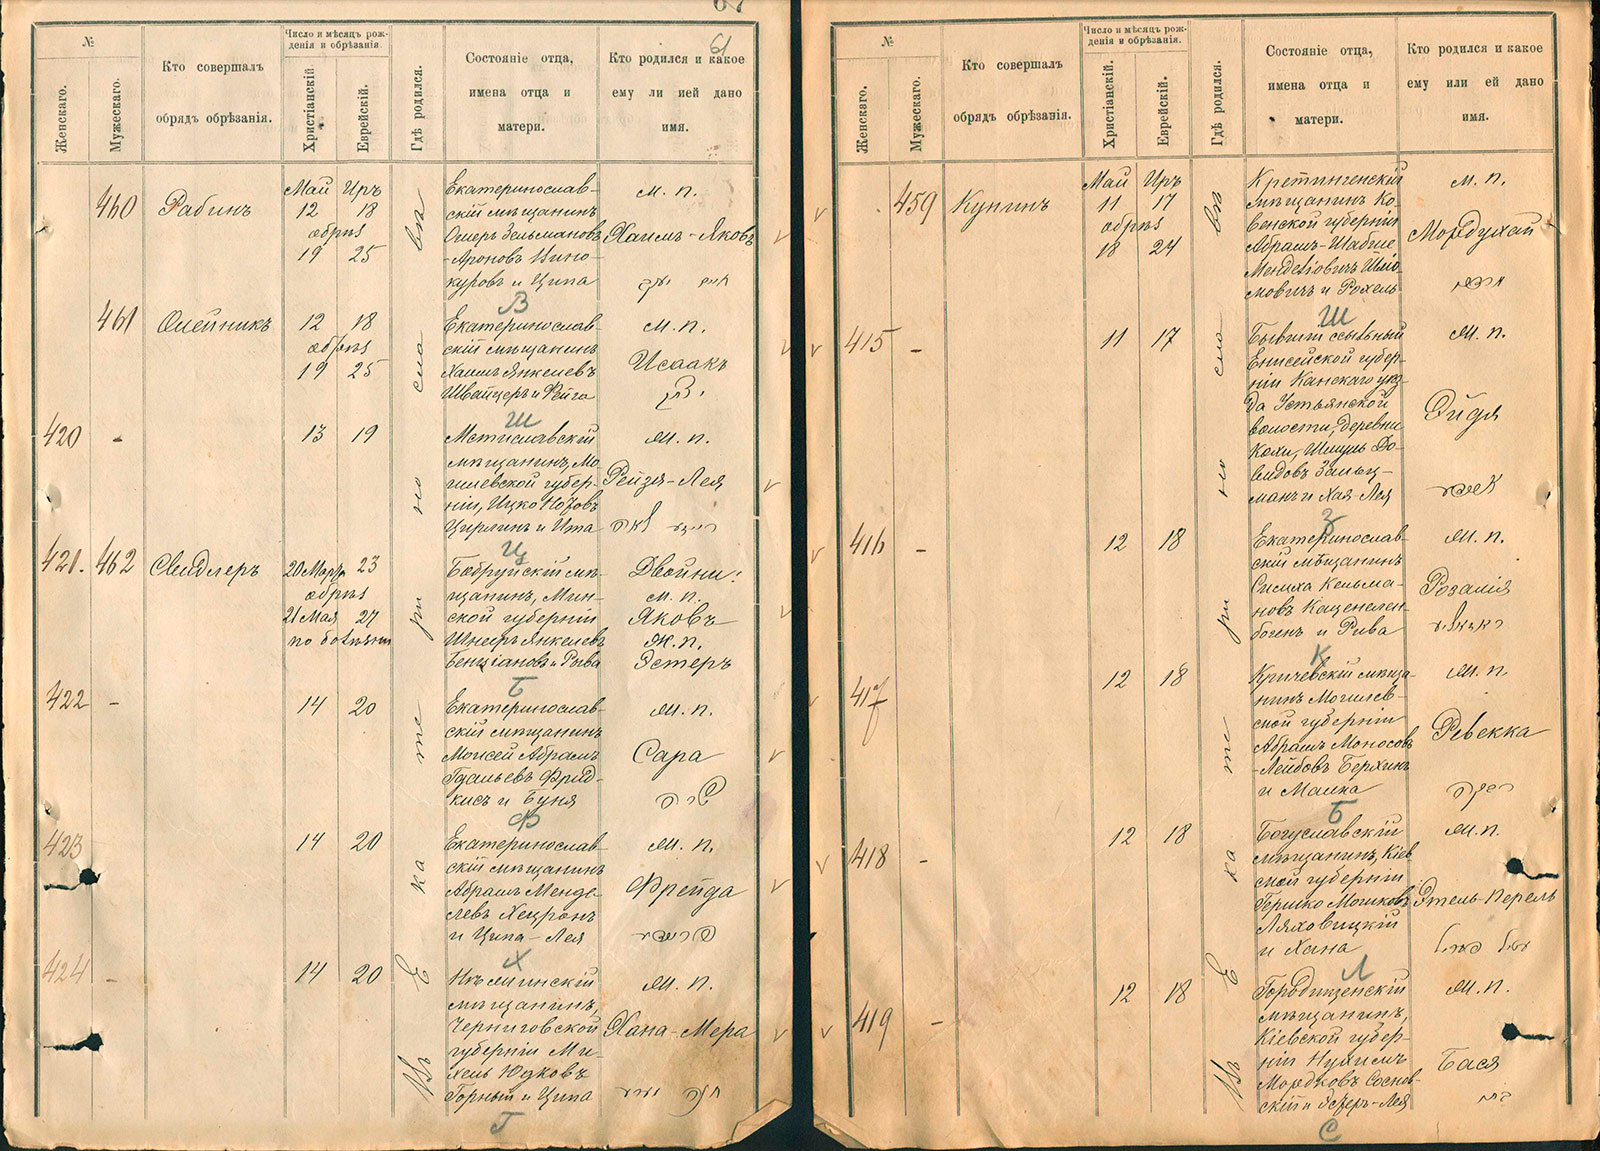 61
№
Женскаго.
Мужескаго.
Кто совершалъ
обрядъ обрѣзанія.
Число и мѣсяцъ рож-
денія и обрѣзанія.
Христіанскій.
Еврейскій.
Гдѣ родился.
Состояніе отца,
имена отца и
матери.
Кто родился и какое
ему ли ией дано
имя.
Въ Екатеринославѣ
460 Рабинъ
Май Иръ
12 18
обрѣз
19 25
Екатеринослав-
скій мѣщанинъ
Ошеръ Зельмановъ
-Ароновъ Вино-
куровъ и Ципа
м. п.
Хаимъ-Яковъ
חיים יעקב
В
461 Олейникъ
12 18
обрѣз
19 25
Екатеринослав-
скій мѣщанинъ
Хаимъ Янкелевъ
Швайцеръ и Фейга
м. п.
Исаакъ
יצחק
Ш
420 -
13 19
Мстиславскій
мѣщанинъ, Мо-
гилевской губер-
ніи, Ицко
Цирлинъ и Ита
м. п.
Рейзя-Лея
רייזע לאה
Ц
421. 462 Свидлеръ
20 Марта 23
обрѣз
21 Мая 27
по болѣзни
Бобруйскій мѣ-
щанинъ, Мин-
ской губерніи
Шнееръ Янкелевъ
Бенціановъ и Рива
Двойни:
м. п.
Яковъ
ж. п.
Эстеръ
Б
422 -
14 20
Екатеринослав-
скій мѣщанинъ
Моисей Абрамъ
Гдальевъ Фрид-
кисъ и Буня
м. п.
Сара
שרה
Ф
423
14 20
Екатеринослав-
скій мѣщанинъ
Абрамъ Менде-
левъ Хецронъ
и Ципа-Лея
м. п.
Фрейда
פריידא
Х
424 -
14 20
мѣщанинъ,
Черниговской
губерніи Ми-
хель Юдковъ
Горный и Ципа
м. п.
Хана-Мера
חנה מערע
Г
№
Женскаго.
Мужескаго.
Кто совершалъ
обрядъ обрѣзанія.
Число и мѣсяцъ рож-
денія и обрѣзанія.
Христіанскій.
Еврейскій.
Гдѣ родился.
Состояніе отца,
имена отца и
матери.
Кто родился и какое
ему или ей дано
имя.
Въ Екатеринославѣ
459 Купинъ
Май Иръ
11 17
обрѣз
18 24
Кретингенскій
мѣщанинъ Ко-
венской губерніи
Абрамъ-Шабше
Менделіовичъ Шлio-
мовичъ и Рохель
м. п.
Мордухай
מרדכי
Ш
415 -
11 17
Бывшій ссыльный
Енисейской губер-
ніи Канскаго уѣз-
да Устьянской
волости, деревни
Шмуль До-
видовъ Зальц-
манъ и Хая-Лея
м. п.
Эйдя
З
416 -
12 18
Екатеринослав-
скій мѣщанинъ
Кельма-
новъ Каценелен-
богенъ и Рива
м. п.
Розалія
К
417
12 18
Кричевскій мѣща-
нинъ Могилев-
ской губерніи
Абрамъ Моносовъ
-Лейбовъ Берхинъ
и Малка
м. п.
Ревекка
רבקה
Б
418 -
12 18
Богуславскій
мѣщанинъ, Кіев-
ской губерніи
Гершко Мошковъ
Ляховицкій
и Хана
м. п.
Этель-Перель
עטיל פעריל
Л
419 -
12 18
Городищенскій
мѣщанинъ,
Кіевской губер-
ніи Нухимъ
Мордковъ Соснов-
скій и Эстеръ-Лея
м. п.
Бася
С